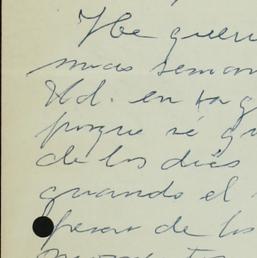 He queri
unas seman
Ud. en la q
porque sé qu
de los dias
quando el
pesar de los